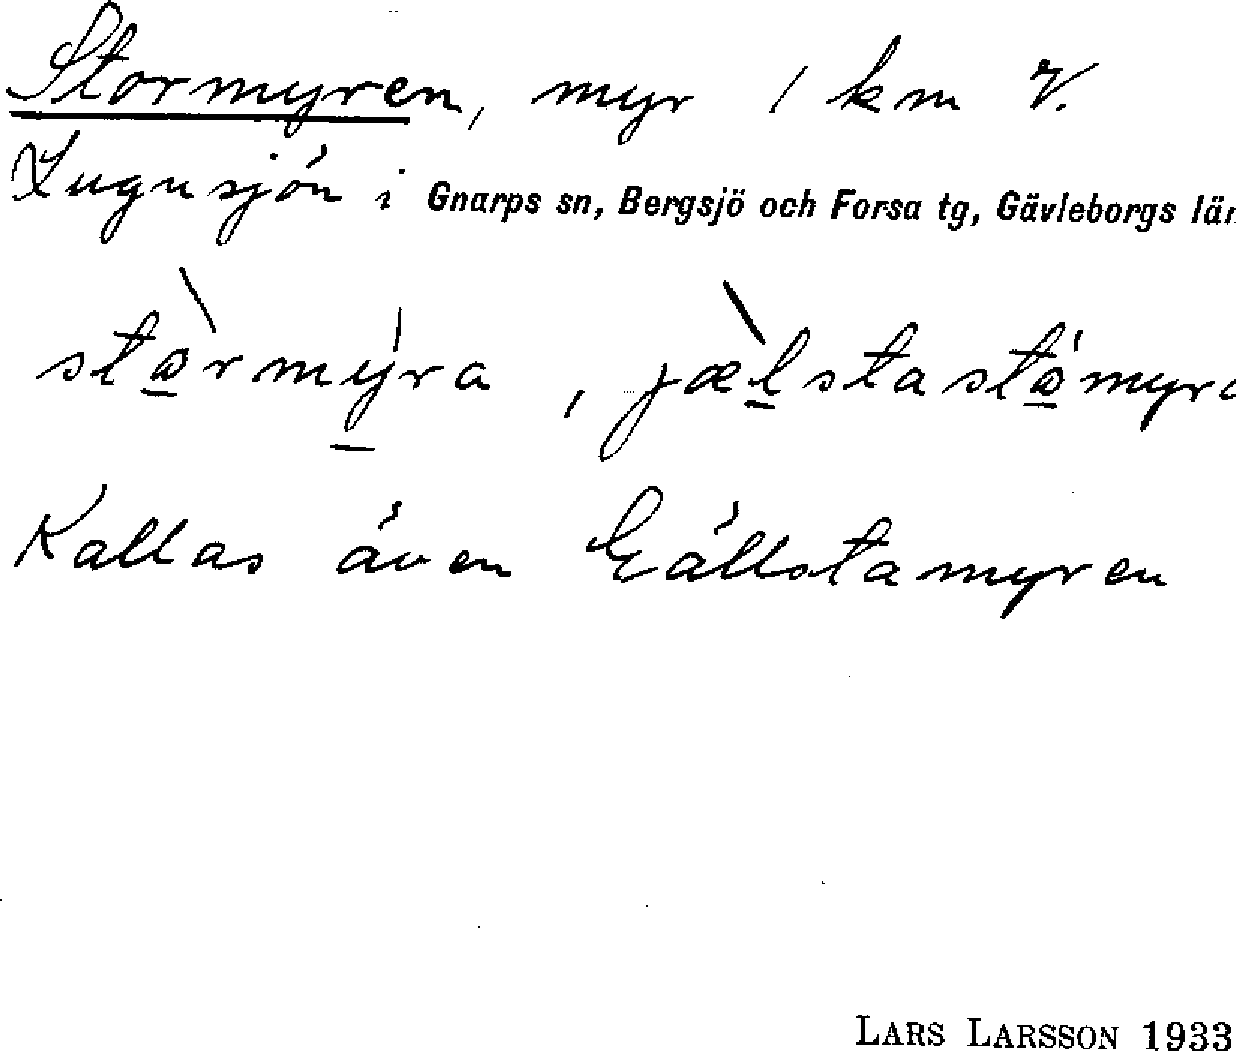 Stormyren, myr 1 km V.
Lugnsjön i Gnarps sn, Bergsjö och Forsa tg, Gävleborgs län
stòrmýra, jæ̀lstastómyra
Kallas även Gällstamyren
LARS LARSSON 1933